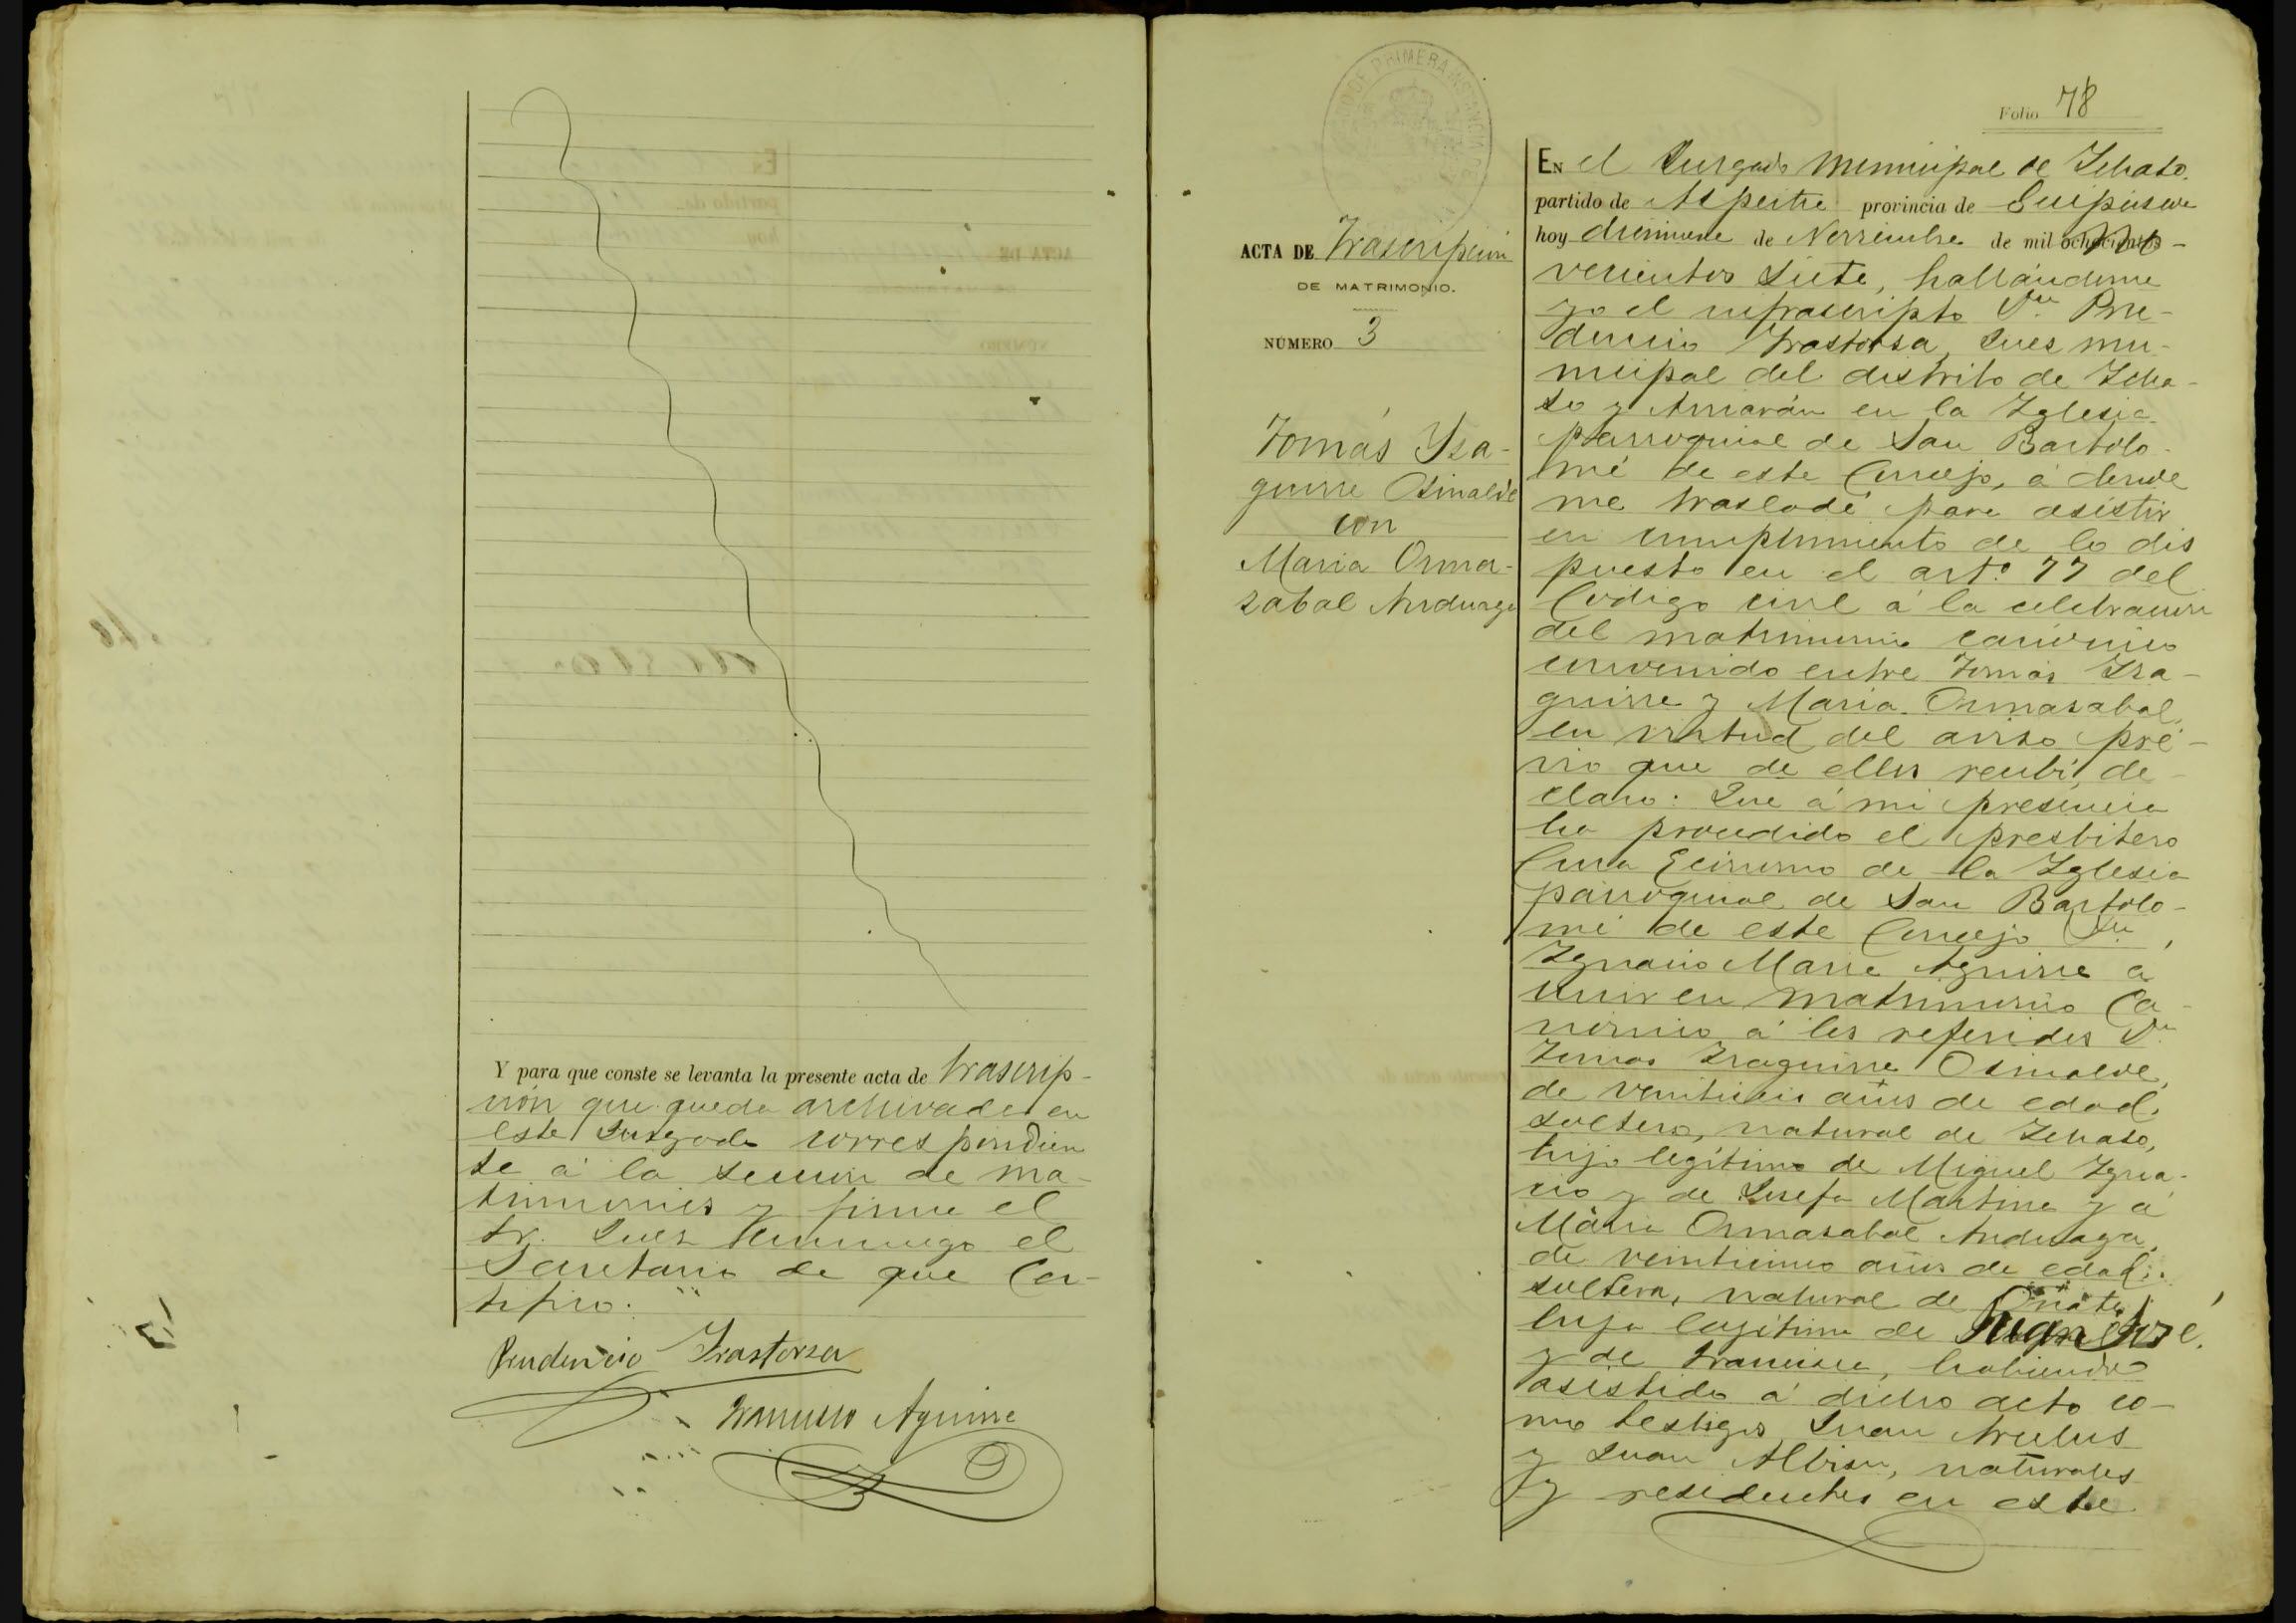 Y para que conste se levanta la presente acta de trascrip-
ción que queda archivada en
este Juzgado correspondien
te á la sección de ma-
trimonios y firma el
Sr. Juez conmigo el
Secretario de que Cer-
tifico.
Prudencio Trastorza
Francisco Aguirre
JUZGADO DE PRIMERA INSTANCIA
Folio 78
ACTA DE Trascripción
DE MATRIMONIO.
NÚMERO 3
Tomás Yza-
guirre Osinalde
con
Maria Orma-
zabal Anduaga
EN el Juzgado municipal de Ichaso
partido de Azpeitia provincia de Guipúzcoa
hoy diecinueve de Noviembre de mil ochocientos no-
vecientos siete, hallándome
yo el infrascripto Dn Pru-
dencio Trastorza, Juez mu-
nicipal del distrito de Icha-
so y Arriarán en la Iglesia
parroquial de San Bartolo-
mé de este Concejo, á donde
me trasladé para asistir
en cumplimiento de lo dis
puesto en el artº 77 del
Codigo civil á la celebracion
del matrimonio canónico
convenido entre Tomás Iza-
guirre y Maria Ormazabal,
en virtud del aviso pré-
vio que de ellos recibí, de-
claro: Que á mi presencia
ha procedido el presbitero
Cura Ecónomo de la Iglesia
parroquial de San Bartolo-
mé de este Concejo Dn
Ignacio Maria Aguirre á
unir en matrimonio Ca-
nónico á los referidos Dn
Tomas Izaguirre Osinalde,
de años de edad,
soltero, natural de Ichaso,
hijo legítimo de Miguel Igna-
cio y de Josefa Martina y á
Maria Ormazabal Anduaga,
de veinticinco años de edad,
soltera, natural de Oñate,
hija legitima de Juan José
y de Francisca, habiendo
asistido á dicho acto co-
mo testigos Juan
y Juan Albisu, naturales
y residentes en este